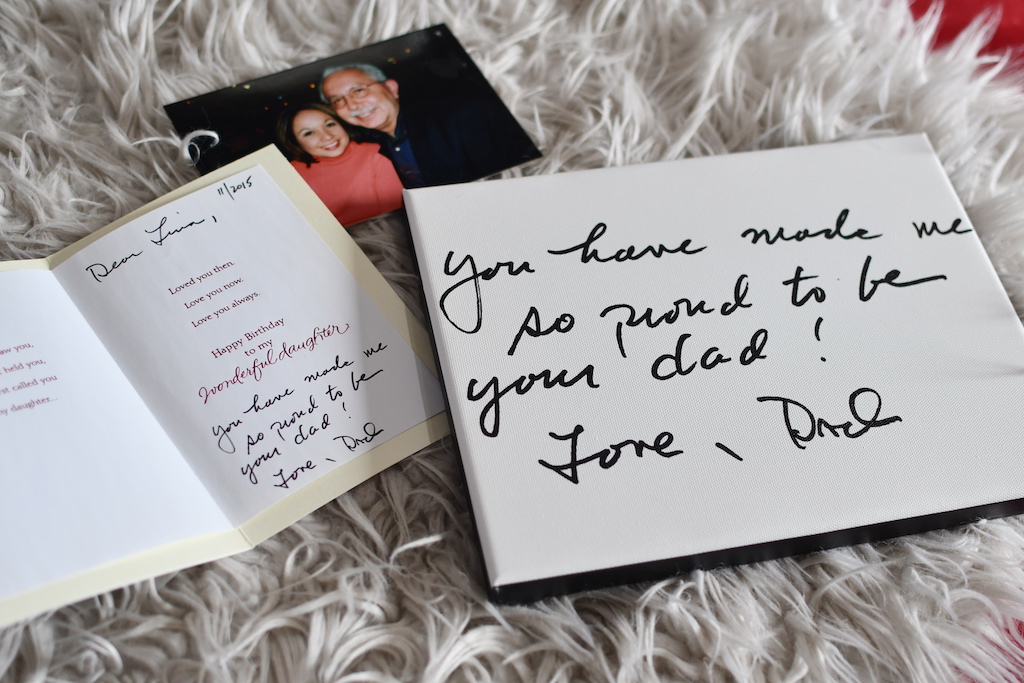 11/2015
Dear Livia,
Loved you then.
Love you now.
Love you always.
Happy Birthday
to my
wonderful daughter
you have made me
so proud to be
your dad!
Love, Dad
aw you,
held you,
st called you
my daughter...
You have made me
so proud to be
your dad!
Love, Dad